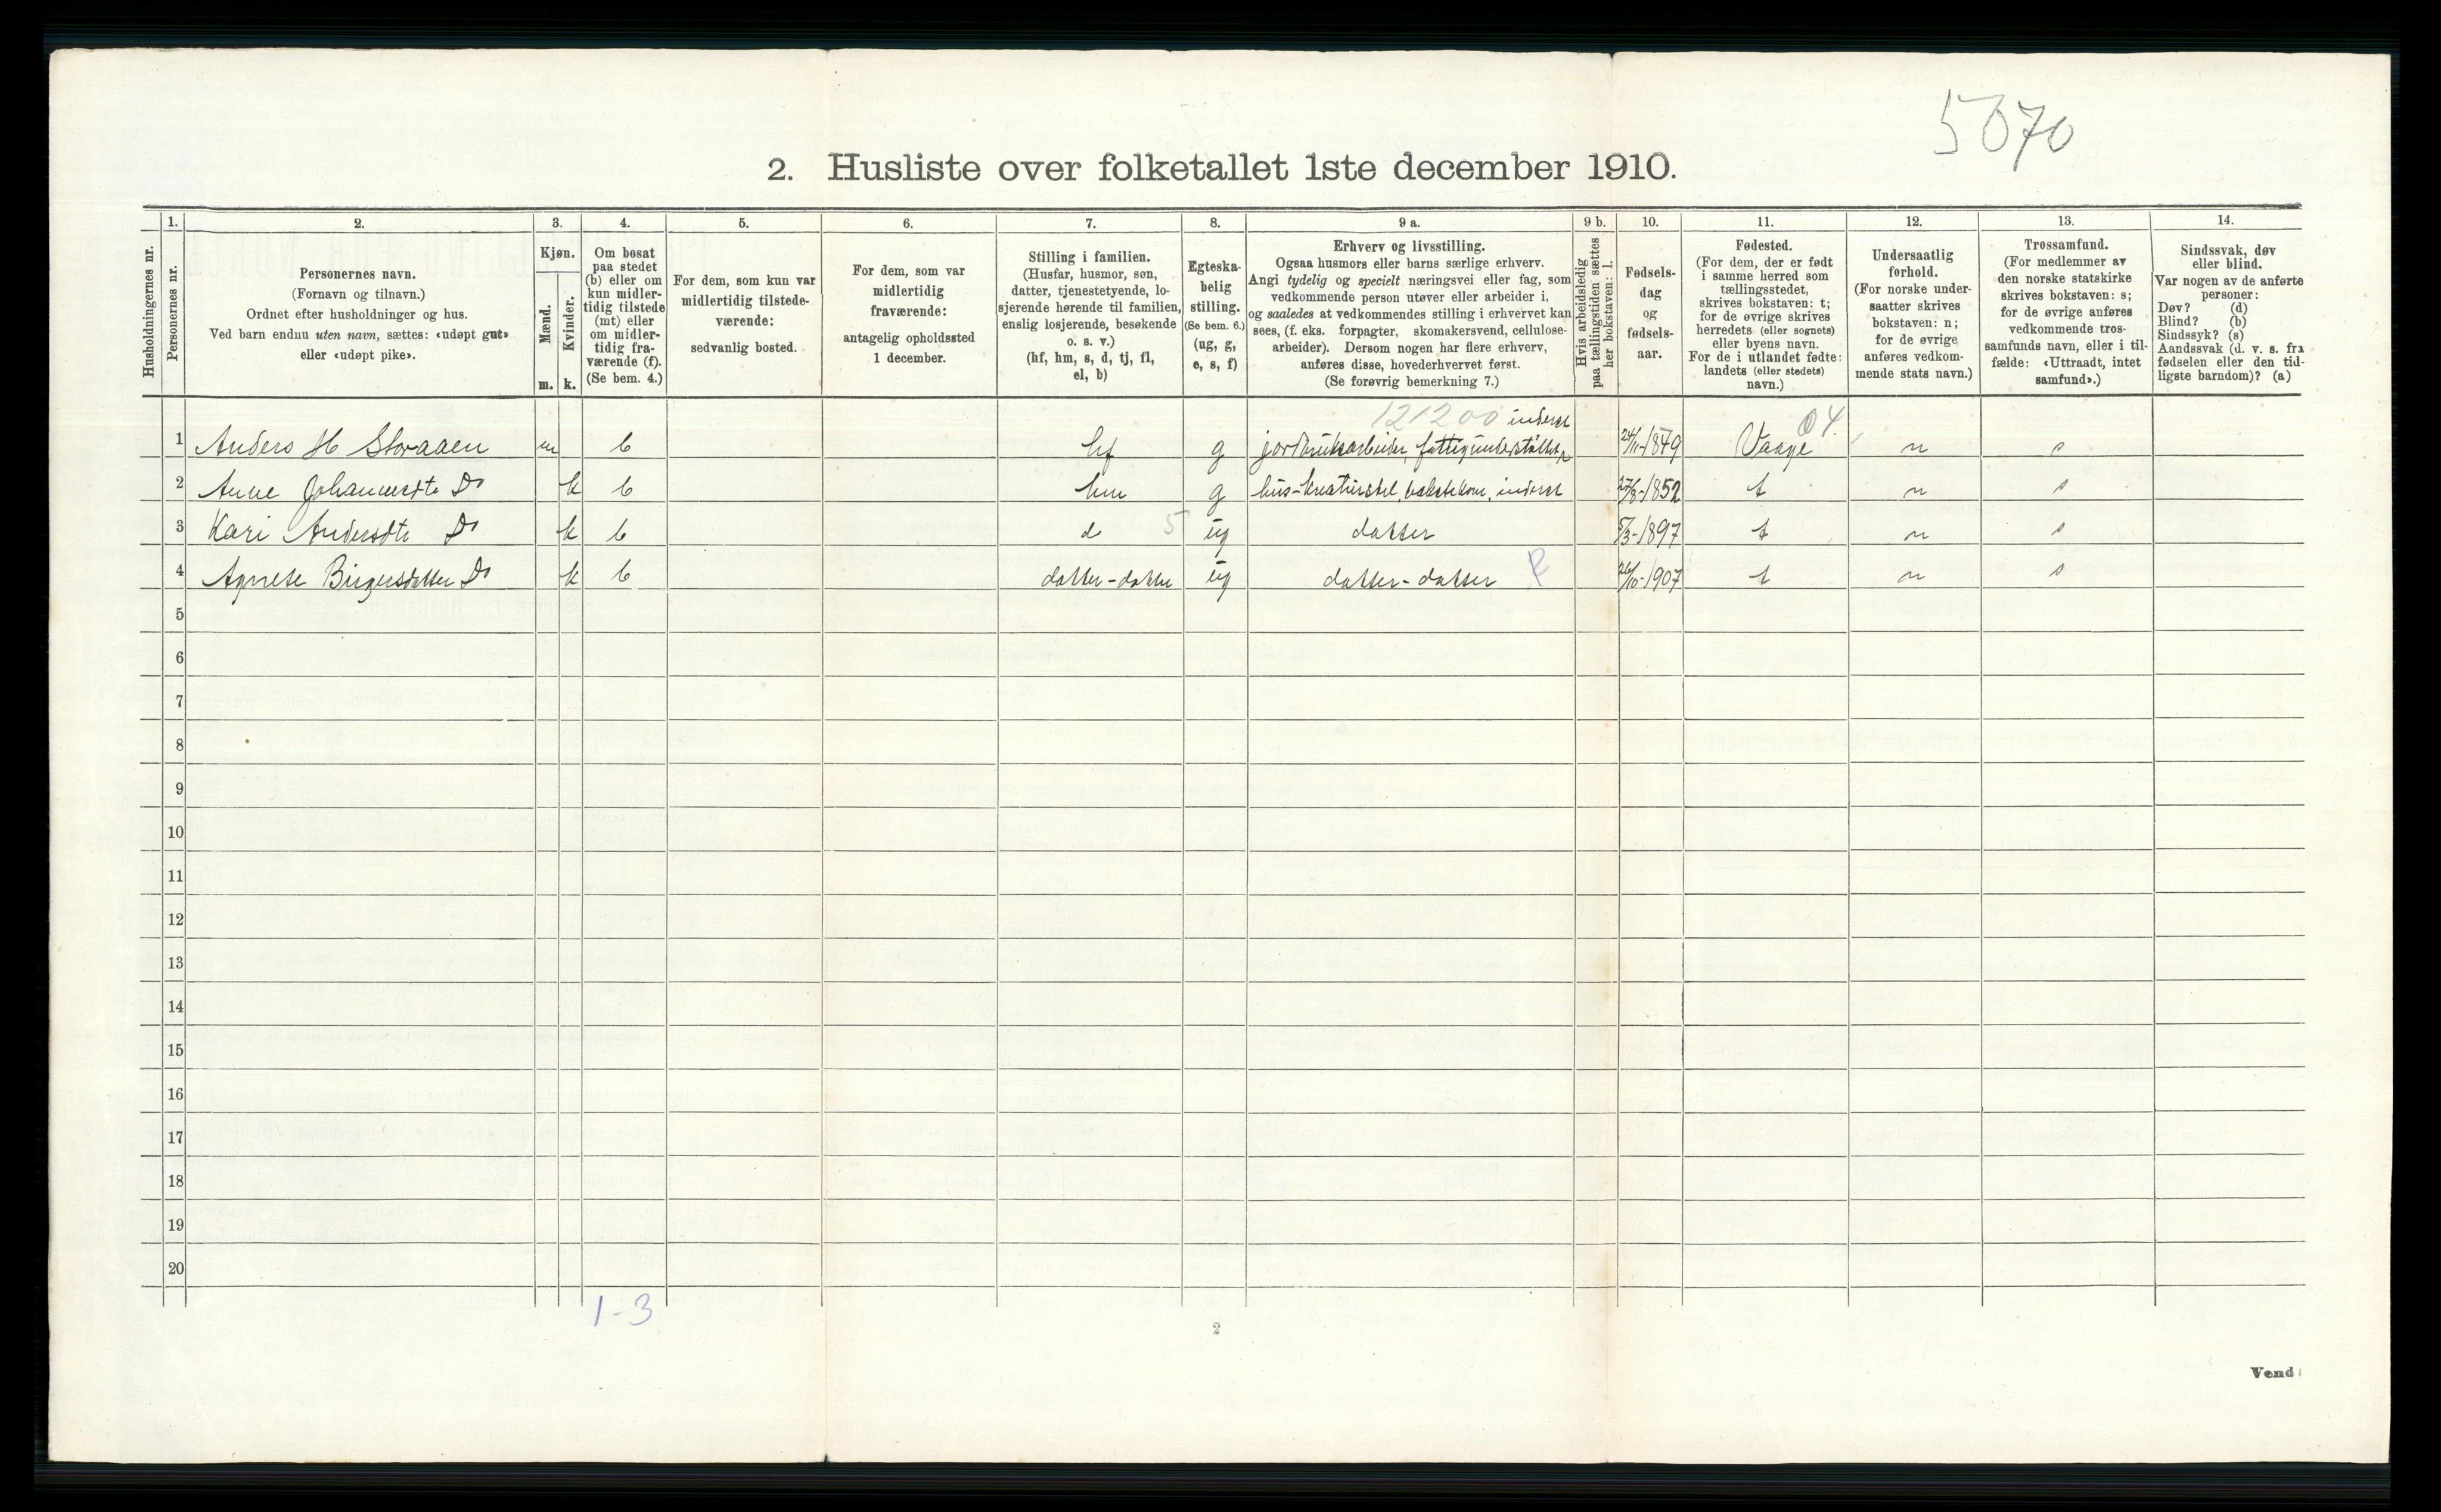 5070
2. Husliste over folketallet 1ste december 1910.
Husholdningernes nr.
1.
Personernes nr.
2.
Personernes navn.
(Fornavn og tilnavn.)
Ordnet efter husholdninger og hus.
Ved barn endnu uten navn, sættes: «udøpt gut»
eller «udøpt pike».
3.
Kjøn.
Mænd.
Kvinder.
m. k.
4.
Om bosat
paa stedet
(b) eller om
kun midler-
tidig tilstede
(mt) eller
om midler-
tidig fra-
værende (f).
(Se bem. 4.)
5.
For dem, som kun var
midlertidig tilstede-
værende:
sedvanlig bosted.
6.
For dem, som var
midlertidig
fraværende:
antagelig opholdssted
1 december.
7.
Stilling i familien.
(Husfar, husmor, søn,
datter, tjenestetyende, lo-
sjerende hørende til familien,
enslig losjerende, besøkende
o. s. v.)
(hf, hm, s, d, tj, fl,
el, b)
8.
Egteska-
belig
stilling.
(Se bem. 6.)
(ug, g,
e, s, f)
9 a.
Erhverv og livsstilling.
Ogsaa husmors eller barns særlige erhverv.
Angi tydelig og specielt næringsvei eller fag, som
vedkommende person utøver eller arbeider i,
og saaledes at vedkommendes stilling i erhvervet kan
sees, (f. eks. forpagter, skomakersvend, cellulose-
arbeider). Dersom nogen har flere erhverv,
anføres disse, hovederhvervet først.
(Se forøvrig bemerkning 7.)
9 b.
Hvis arbeidsledig
paa tællingstiden sættes
her bokstaven: l.
10.
Fødsels-
dag
og
fødsels-
aar.
11.
Fødested.
(For dem, der er født
i samme herred som
tællingsstedet,
skrives bokstaven: t;
for de øvrige skrives
herredets (eller sognets)
eller byens navn.
For de i utlandet fødte:
landets (eller stedets)
navn.)
12.
Undersaatlig
forhold.
(For norske under-
saatter skrives
bokstaven: n;
for de øvrige
anføres vedkom-
mende stats navn.)
13.
Trossamfund.
(For medlemmer av
den norske statskirke
skrives bokstaven: s;
for de øvrige anføres
vedkommende tros-
samfunds navn, eller i til-
fælde: «Uttraadt, intet
samfund».)
14.
Sindssvak, døv
eller blind.
Var nogen av de anførte
personer:
Døv? (d)
Blind? (b)
Sindssyk? (s)
Aandssvak (d. v. s. fra
fødselen eller den tid-
ligste barndom)? (a)
121200 inderst 04
1 Anders H Storaaen m b hf g jordbruksarbeider, fattigunderstøttet 24/11-1849 Vaage n s
2 Anne Johannesdtr Do k b hm g hus-kreaturstel, inderst 27/8-1852 t n s
3 Kari Andersdtr Do k b d 5 ug datter 5/3-1897 t n s
4 Agnete Birgersdatter Do k b datter-datter ug datter-datter 26/10-1907 t n s
5
6
7
8
9
10
11
12
13
14
15
16
17
18
19
20
1-3
2
Vend